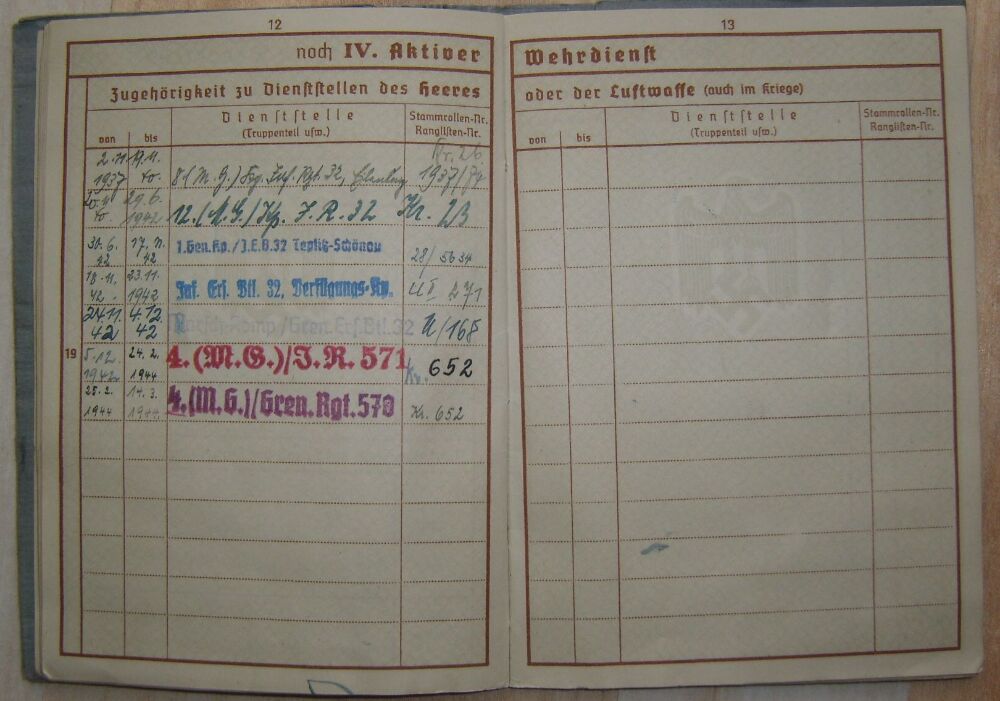 12
noch IV. Aktiver
Zugehörigkeit zu Dienststellen des Heeres
von
bis
Dienststelle
(Truppenteil usw.)
Stammrollen-Nr.
Ranglisten-Nr.
2.11. 19.11. Nr. 26
1937 8.(M.G.) Erg. Inf. Rgt. 32, 1937/74
29.6.
1942 12.(M.G.) Kp. I.R. 32 Kr. 23
30.6. 17.11.
42 42 1.Gen.Kp./I.E.B.32 Teplitz-Schönau 28/5634
18.11. 23.11.
42. 1942 Inf. Ers. Btl. 32, Verfügungs-Kp. U I 271
24.11. 4.12.
42 42 Marsch-Komp/Gren.Ers.Btl.32 U/168
19 5.12. 24.2. 4.(M.G.)/I.R. 571 Kr. 652
1942 1944
25.2. 14.3. 4.(M.G.)/Gren.Rgt.570
1944 1944 Kr. 652
13
Wehrdienst
oder der Luftwaffe (auch im Kriege)
von
bis
Dienststelle
(Truppenteil usw.)
Stammrollen-Nr.
Ranglisten-Nr.